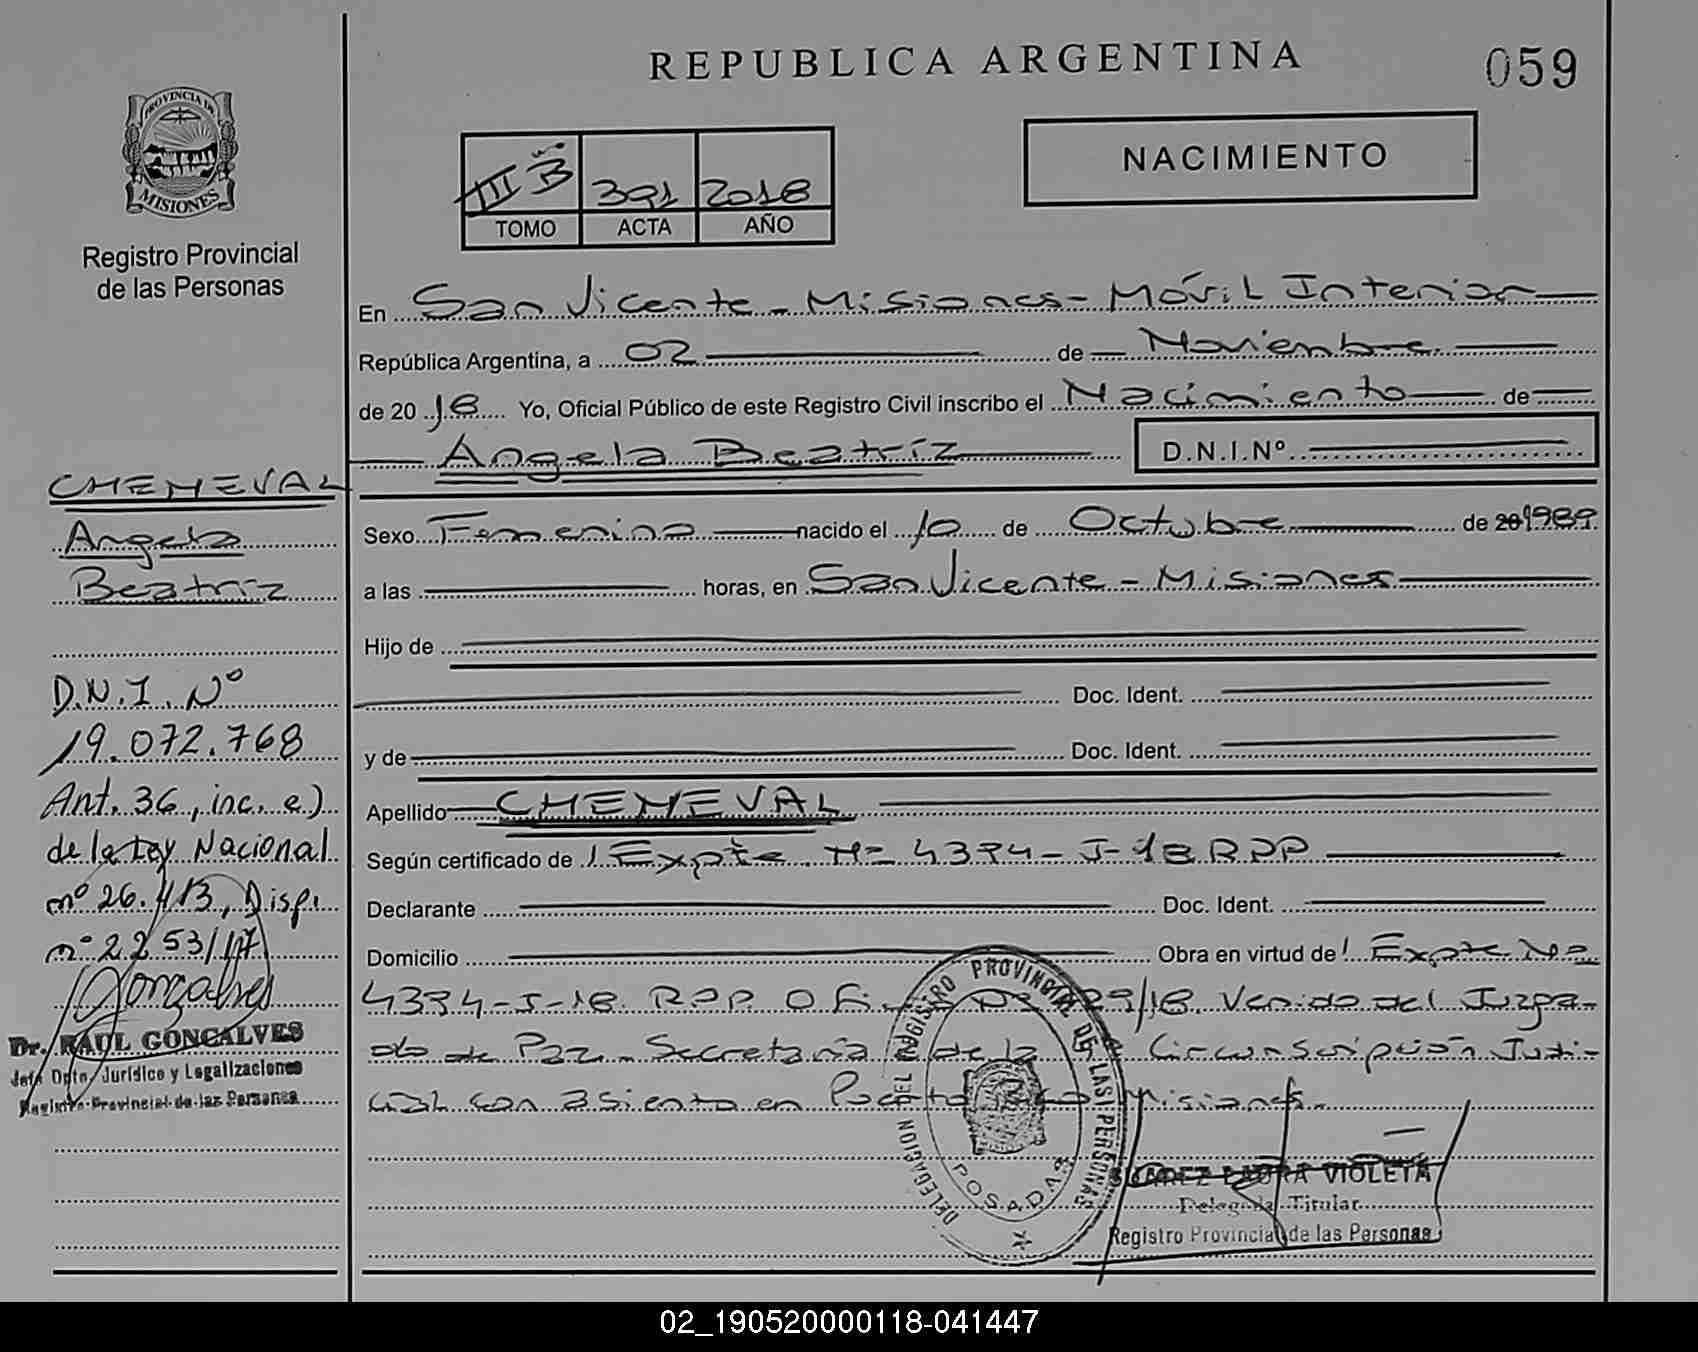 REPUBLICA ARGENTINA
059
PROVINCIA DE
MISIONES
Registro Provincial
de las Personas
III B 391 2018
TOMO ACTA AÑO
NACIMIENTO
En San Vicente - Misiones - Móvil Interior
República Argentina, a 02 de Noviembre
de 2018 Yo, Oficial Público de este Registro Civil inscribo el Nacimiento de
Angela Beatríz D.N.I.Nº
Sexo Femenino nacido el 10 de Octubre de 20 1989
a las horas, en San Vicente - Misiones
Hijo de
Doc. Ident.
y de Doc. Ident.
Apellido CHEMEVAL
Según certificado de Expte Nº 4394-J-18 RPP
Declarante Doc. Ident.
Domicilio Obra en virtud de Expte Nº
4394-J-18. RPP. Ofi. Nº /18. Venido del Juzga-
do de Paz - Secretaría de la Circunscripción Judi-
cial con asiento en Puerto Misiones.-
CHEMEVAL
Angela
Beatríz
D.N.I. Nº
19.072.768
Art. 36, inc. e)
de la Ley Nacional
nº 26.413, Disp.
nº 2253/17
Goncalves
Dr. RAUL GONCALVES
Jefe Dpto. Jurídico y Legalizaciones
Registro Provincial de las Personas
DELEGACION DEL REGISTRO PROVINCIAL DE LAS PERSONAS
POSADAS
LAURA VIOLETA
Delegada Titular
Registro Provincial de las Personas
02_190520000118-041447